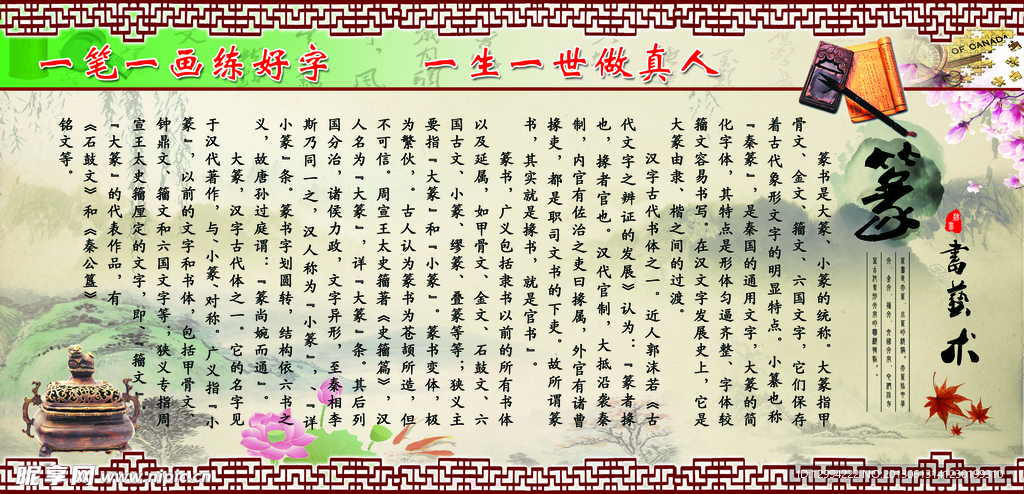 一笔一画练好字 一生一世做真人
OF CANADA
篆
書藝术
篆书是大篆、小篆的统称。大篆指甲
骨文、金文、籀文、六国文字，它们保存
着古代象形文字的明显特点。小纂也称
『秦篆』，是秦国的通用文字，大篆的简
化字体，其特点是形体匀逼齐整、字体较
籀文容易书写。在汉文字发展史上，它是
大篆由隶、楷之间的过渡。
汉字古代书体之一。近人郭沫若《古
代文字之辨证的发展》认为：『篆者掾
也，掾者官也。汉代官制，大抵沿袭秦
制，内官有佐治之吏曰掾属，外官有诸曹
掾吏，都是职司文书的下吏。故所谓篆
书，其实就是掾书，就是官书』。
篆书，广义包括隶书以前的所有书体
以及延属，如甲骨文、金文、石鼓文、六
国古文、小篆、缪篆、叠篆等等；狭义主
要指『大篆』和『小篆』。篆书变体，极
为繁伙，。古人认为篆书为苍颉所造，但
不可信。周宣王太史籀著《史籀篇》，汉
人名为『大篆』，详『大篆』条。其后列
国分治，诸侯力政，文字异形，至秦相李
斯乃同一之，汉人称为『小篆』，、『详
小篆』条。篆书字划圆转，结构依六书之
义，故唐孙过庭谓：『篆尚婉而通』。
大篆，汉字古代体之一。它的名字见
于汉代著作，与、小篆、对称。广义指『小
篆』，以前的文字和书体，包括甲骨文、
钟鼎文、籀文和六国文字等；狭义专指周
宣王太史籀厘定的文字，即、籀文』。
『大篆』的代表作品，有
《石鼓文》和《秦公簋》
铭文等。
昵享网 www.nipic.cn